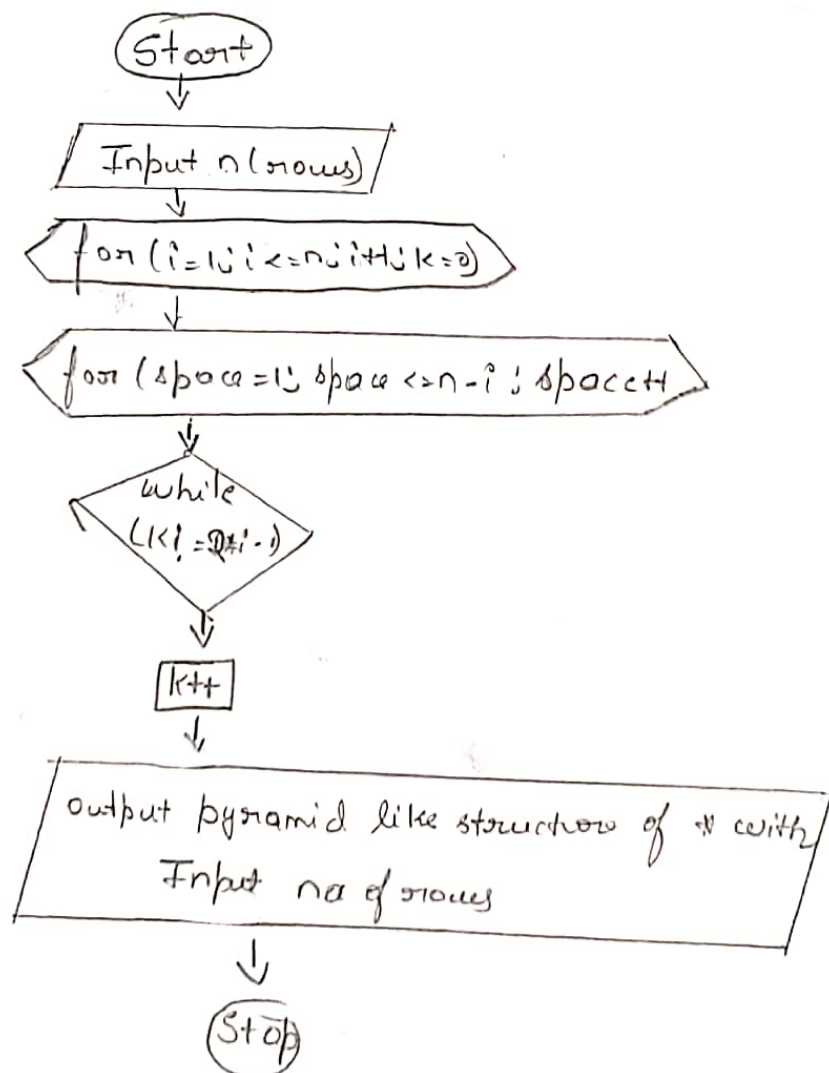 Start
Input n(rows)
for (i=1; i<=n; i++; k=0)
for (space=1; space <=n-i; space++
while
(k!=2*i-1)
k++
output pyramid like structure of * with
Input no of rows
Stop